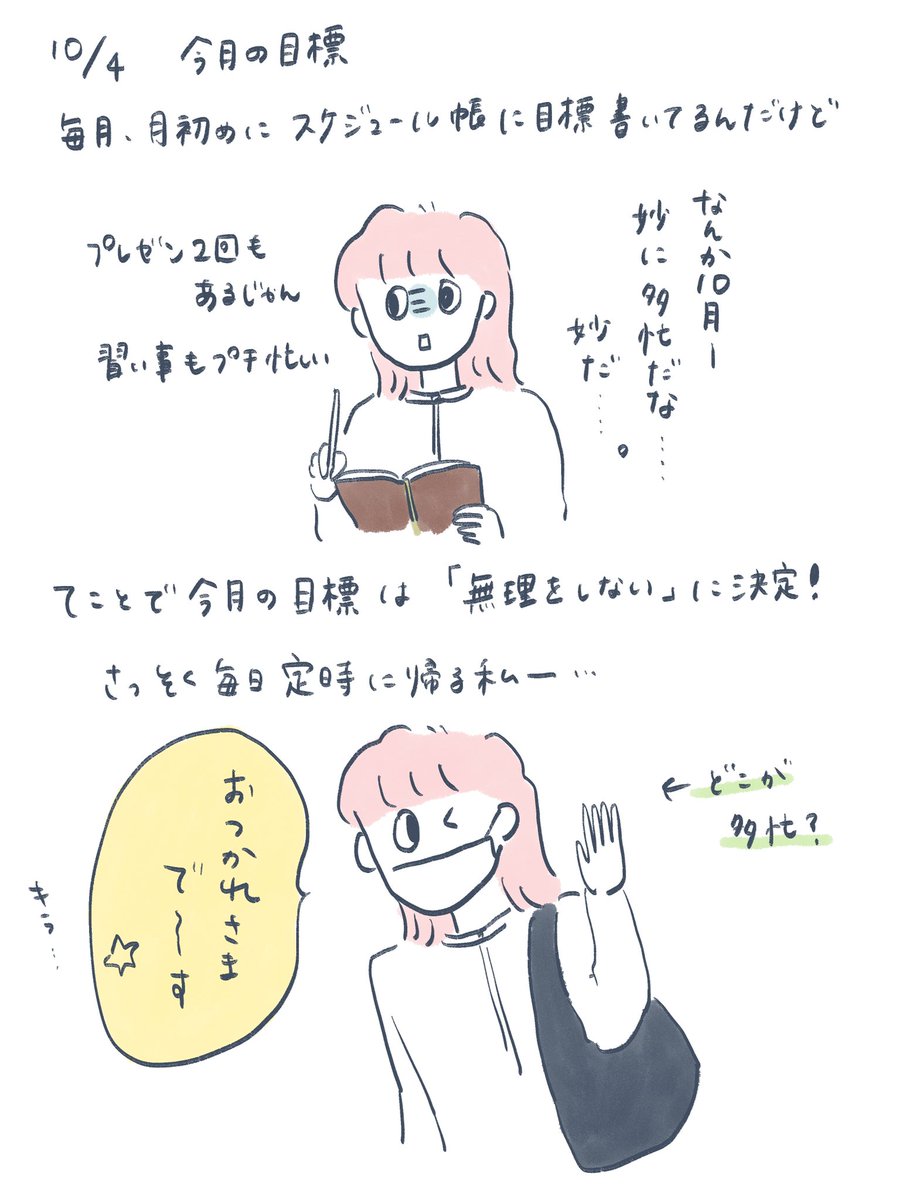 10/4 今月の目標
毎月、月初めにスケジュール帳に目標書いてるんだけど
なんか10月ー
妙に多忙だな……
妙だ……。
プレゼン2回も
あるじゃん
習い事もプチ忙しい
てことで今月の目標は「無理をしない」に決定!
さっそく毎日定時に帰る私ー…
おつかれさま
で〜す☆
キラ…
←どこが
多忙?